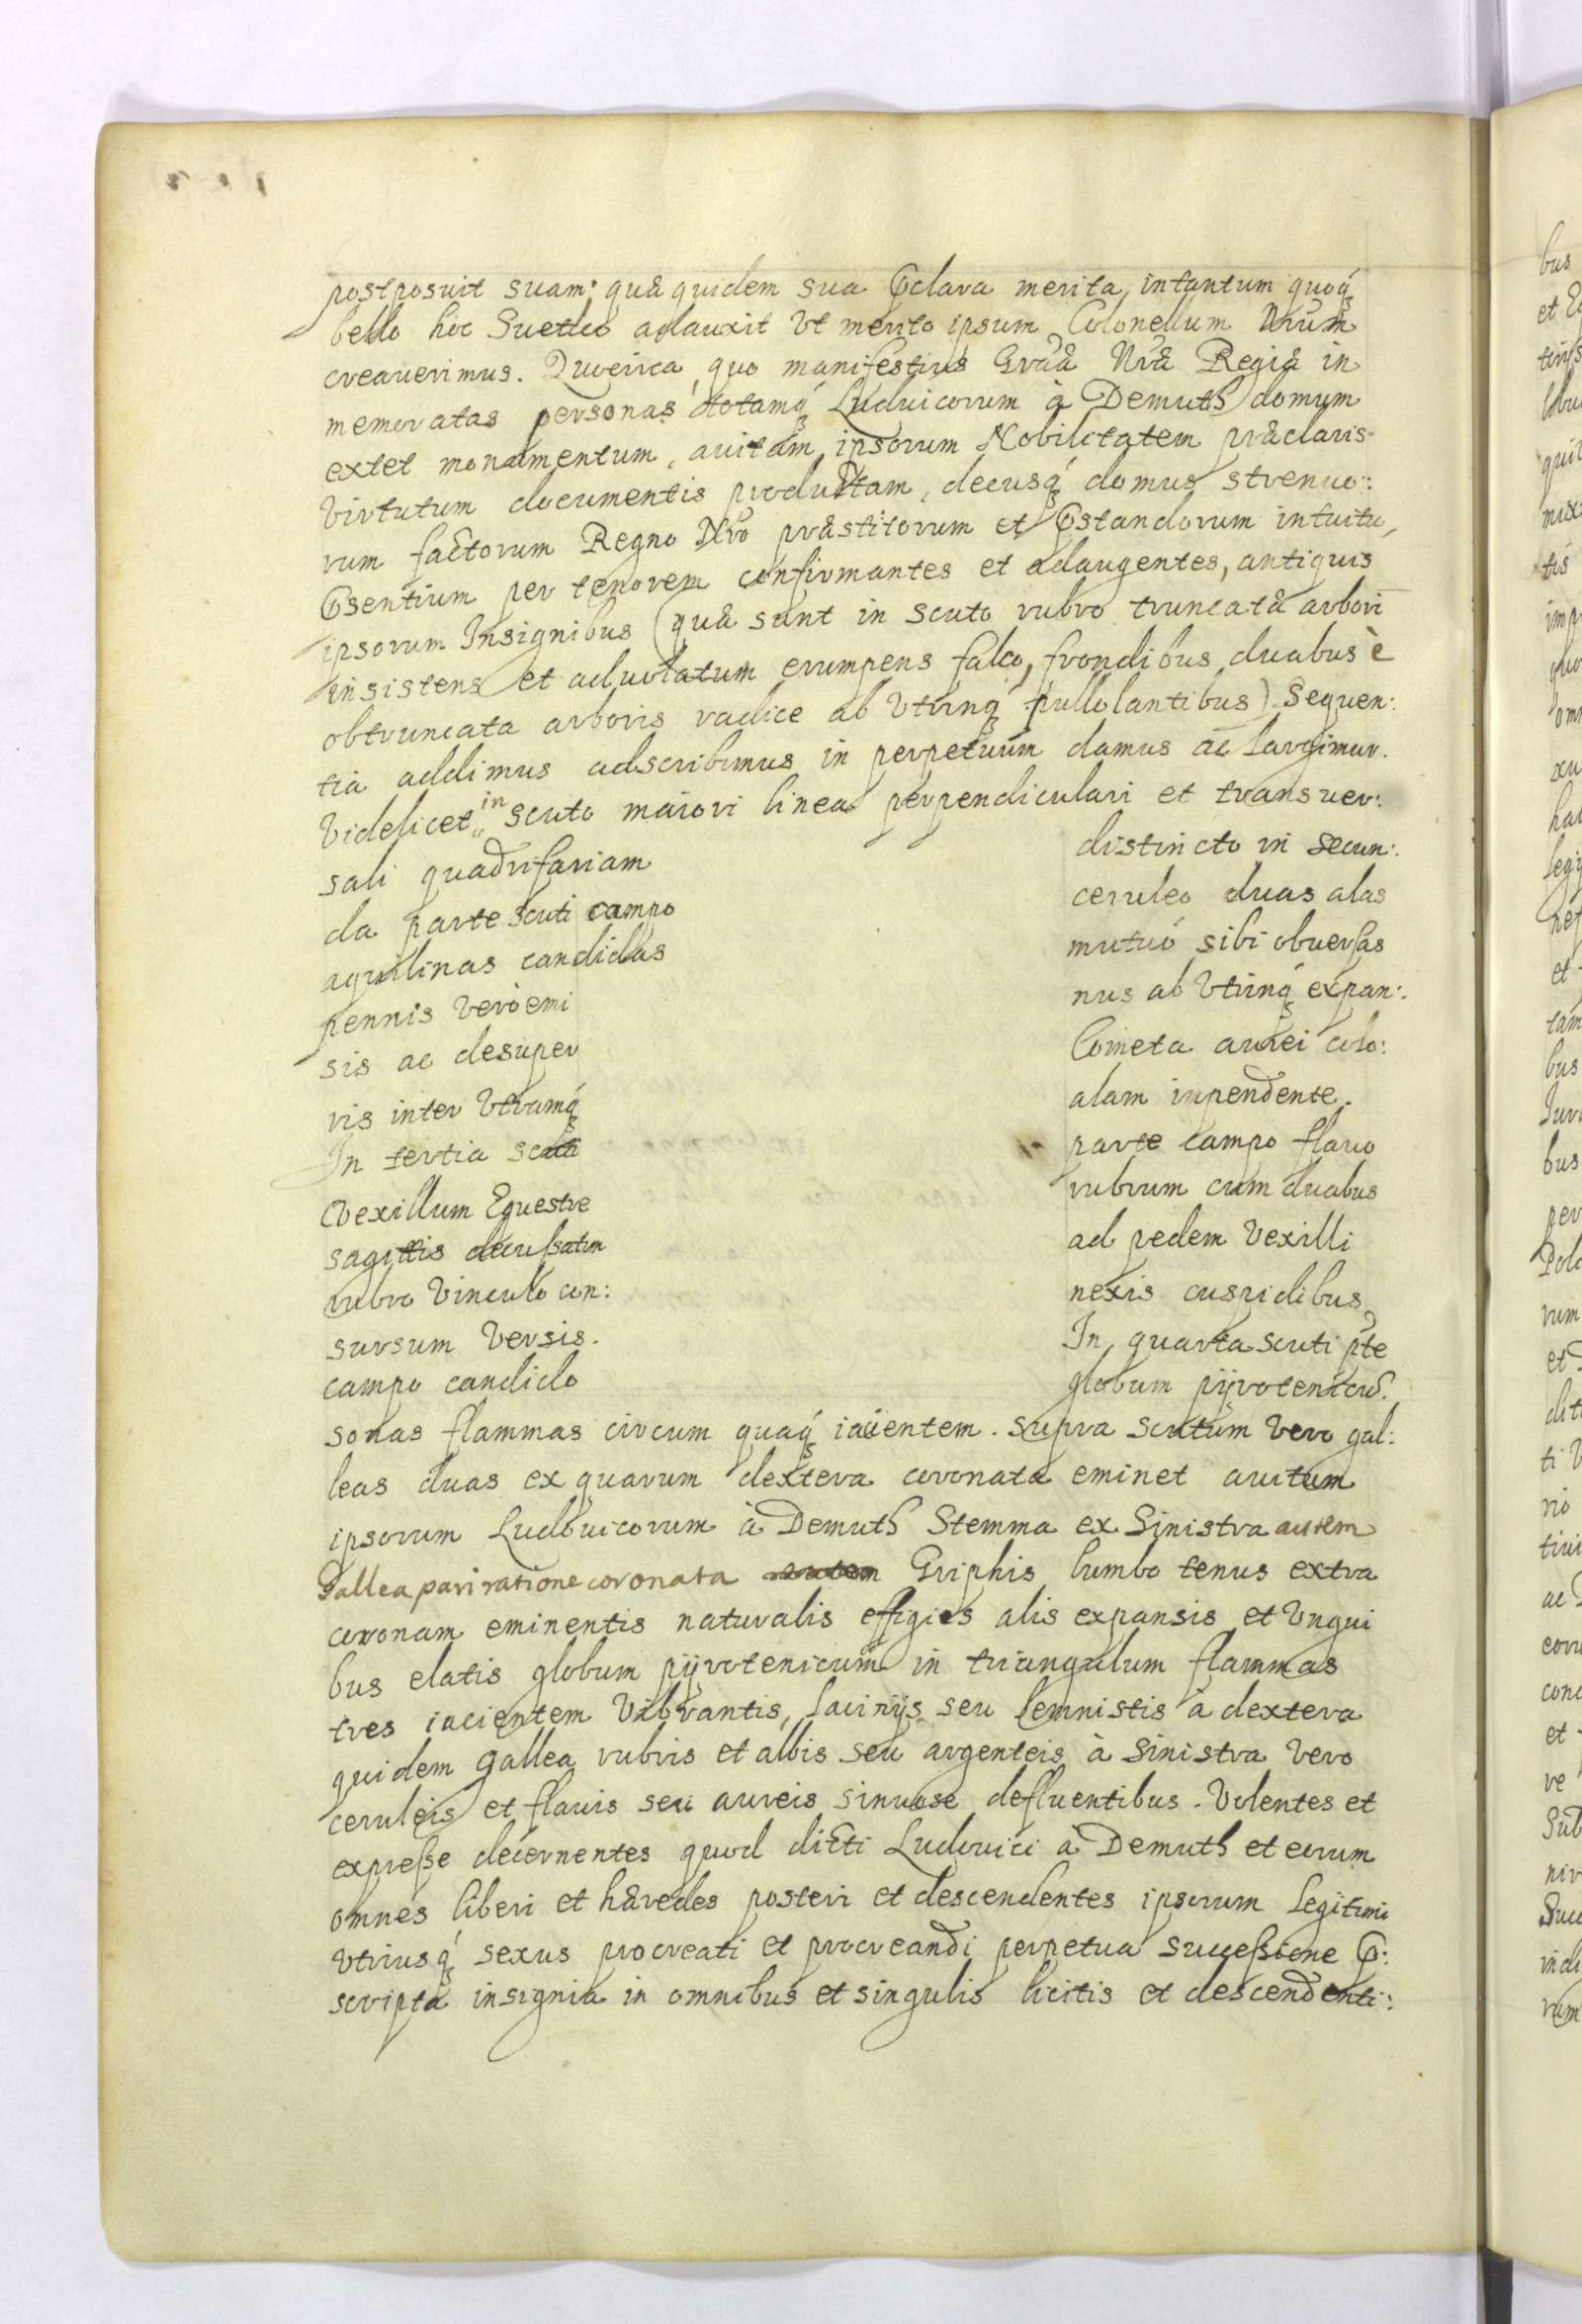 postposuit suam; quæ quidem sua Pclara merita, intantum quoq́
bello hoc Suetico adauxit Vt merito ipsum Colonellum Nrum
creauerimus. Qucirca, quo manifestius Gratiæ Nræ Regiæ in
memoratas personas totamq́ Luduicorum à Demuth domum
extet monumentum, auitam ipsorum Nobilitatem præclaris
Virtutum documentis productam, decusq́ domus strenuo:
rum factorum Regno Nro præstitorum et Pstandorum intuitu,
Psentium per tenorem confirmantes et adaugentes, antiquis
ipsorum Insignibus (quæ sunt in scuto rubro truncatæ arbori
insistens et aduolatum erumpens falco, frondibus duabus è
obtruncata arboris radice ab Vtrinq́ pullolantibus) Sequen:
tia addimus adscribimus in perpetuum damus ac largimur.
Videlicet in scuto maiori linea perpendiculari et transuer:
sali quadrifariam distincto in secun:
da parte scuti campo ceruleo duas alas
aquilinas candidas mutuó sibi obuersas
pennis verò emi nus ab Vtrinq́ expan:
sis ac desuper Cometa aurei colo:
ris inter Vtramq́ alam inpendente.
In tertia scuti parte campo flauo
Vexillum Equestre rubrum cum duabus
sagittis decussatim ad pedem Vexilli
rubro Vinculo con: nexis cuspidibus
sursum Versis. In quarta scuti pte
campo candido globum pijrotenicū
sonas flammas circum quaq́ iacientem. Supra scutum vero gal:
leas duas ex quarum dextera coronata eminet auitum
ipsorum Ludouicorum à Demuth Stemma ex Sinistra autem
Gallea pari ratione coronata Griphis lumbo tenus extra
coronam eminentis naturalis effigies alis expansis et Ungui
bus elatis globum pijrotenicum in triangulum flammas
tres iacientem Vibrantis, lacinijs seu lemnistis à dextera
quidem gallea rubris et albis seu argenteis à Sinistra Vero
ceruleis et flauis seu aureis sinuose defluentibus. Volentes et
expresse decernentes quod dicti Ludouici à Demuth et eorum
omnes liberi et hæredes posteri et descendentes ipsorum legitimi
Vtriusq́ sexus procreati et procreandi perpetua successione P:
scripta insignia in omnibus et singulis licitis et descendenti: